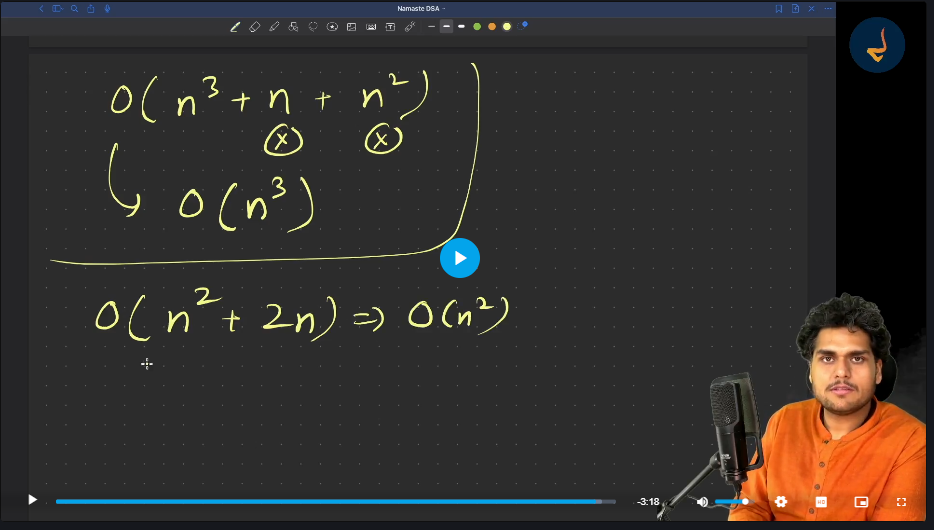 Namaste DSA
O(n³ + n + n²)
x x
O(n³)
O(n² + 2n) ⇒ O(n²)
-3:18 HD